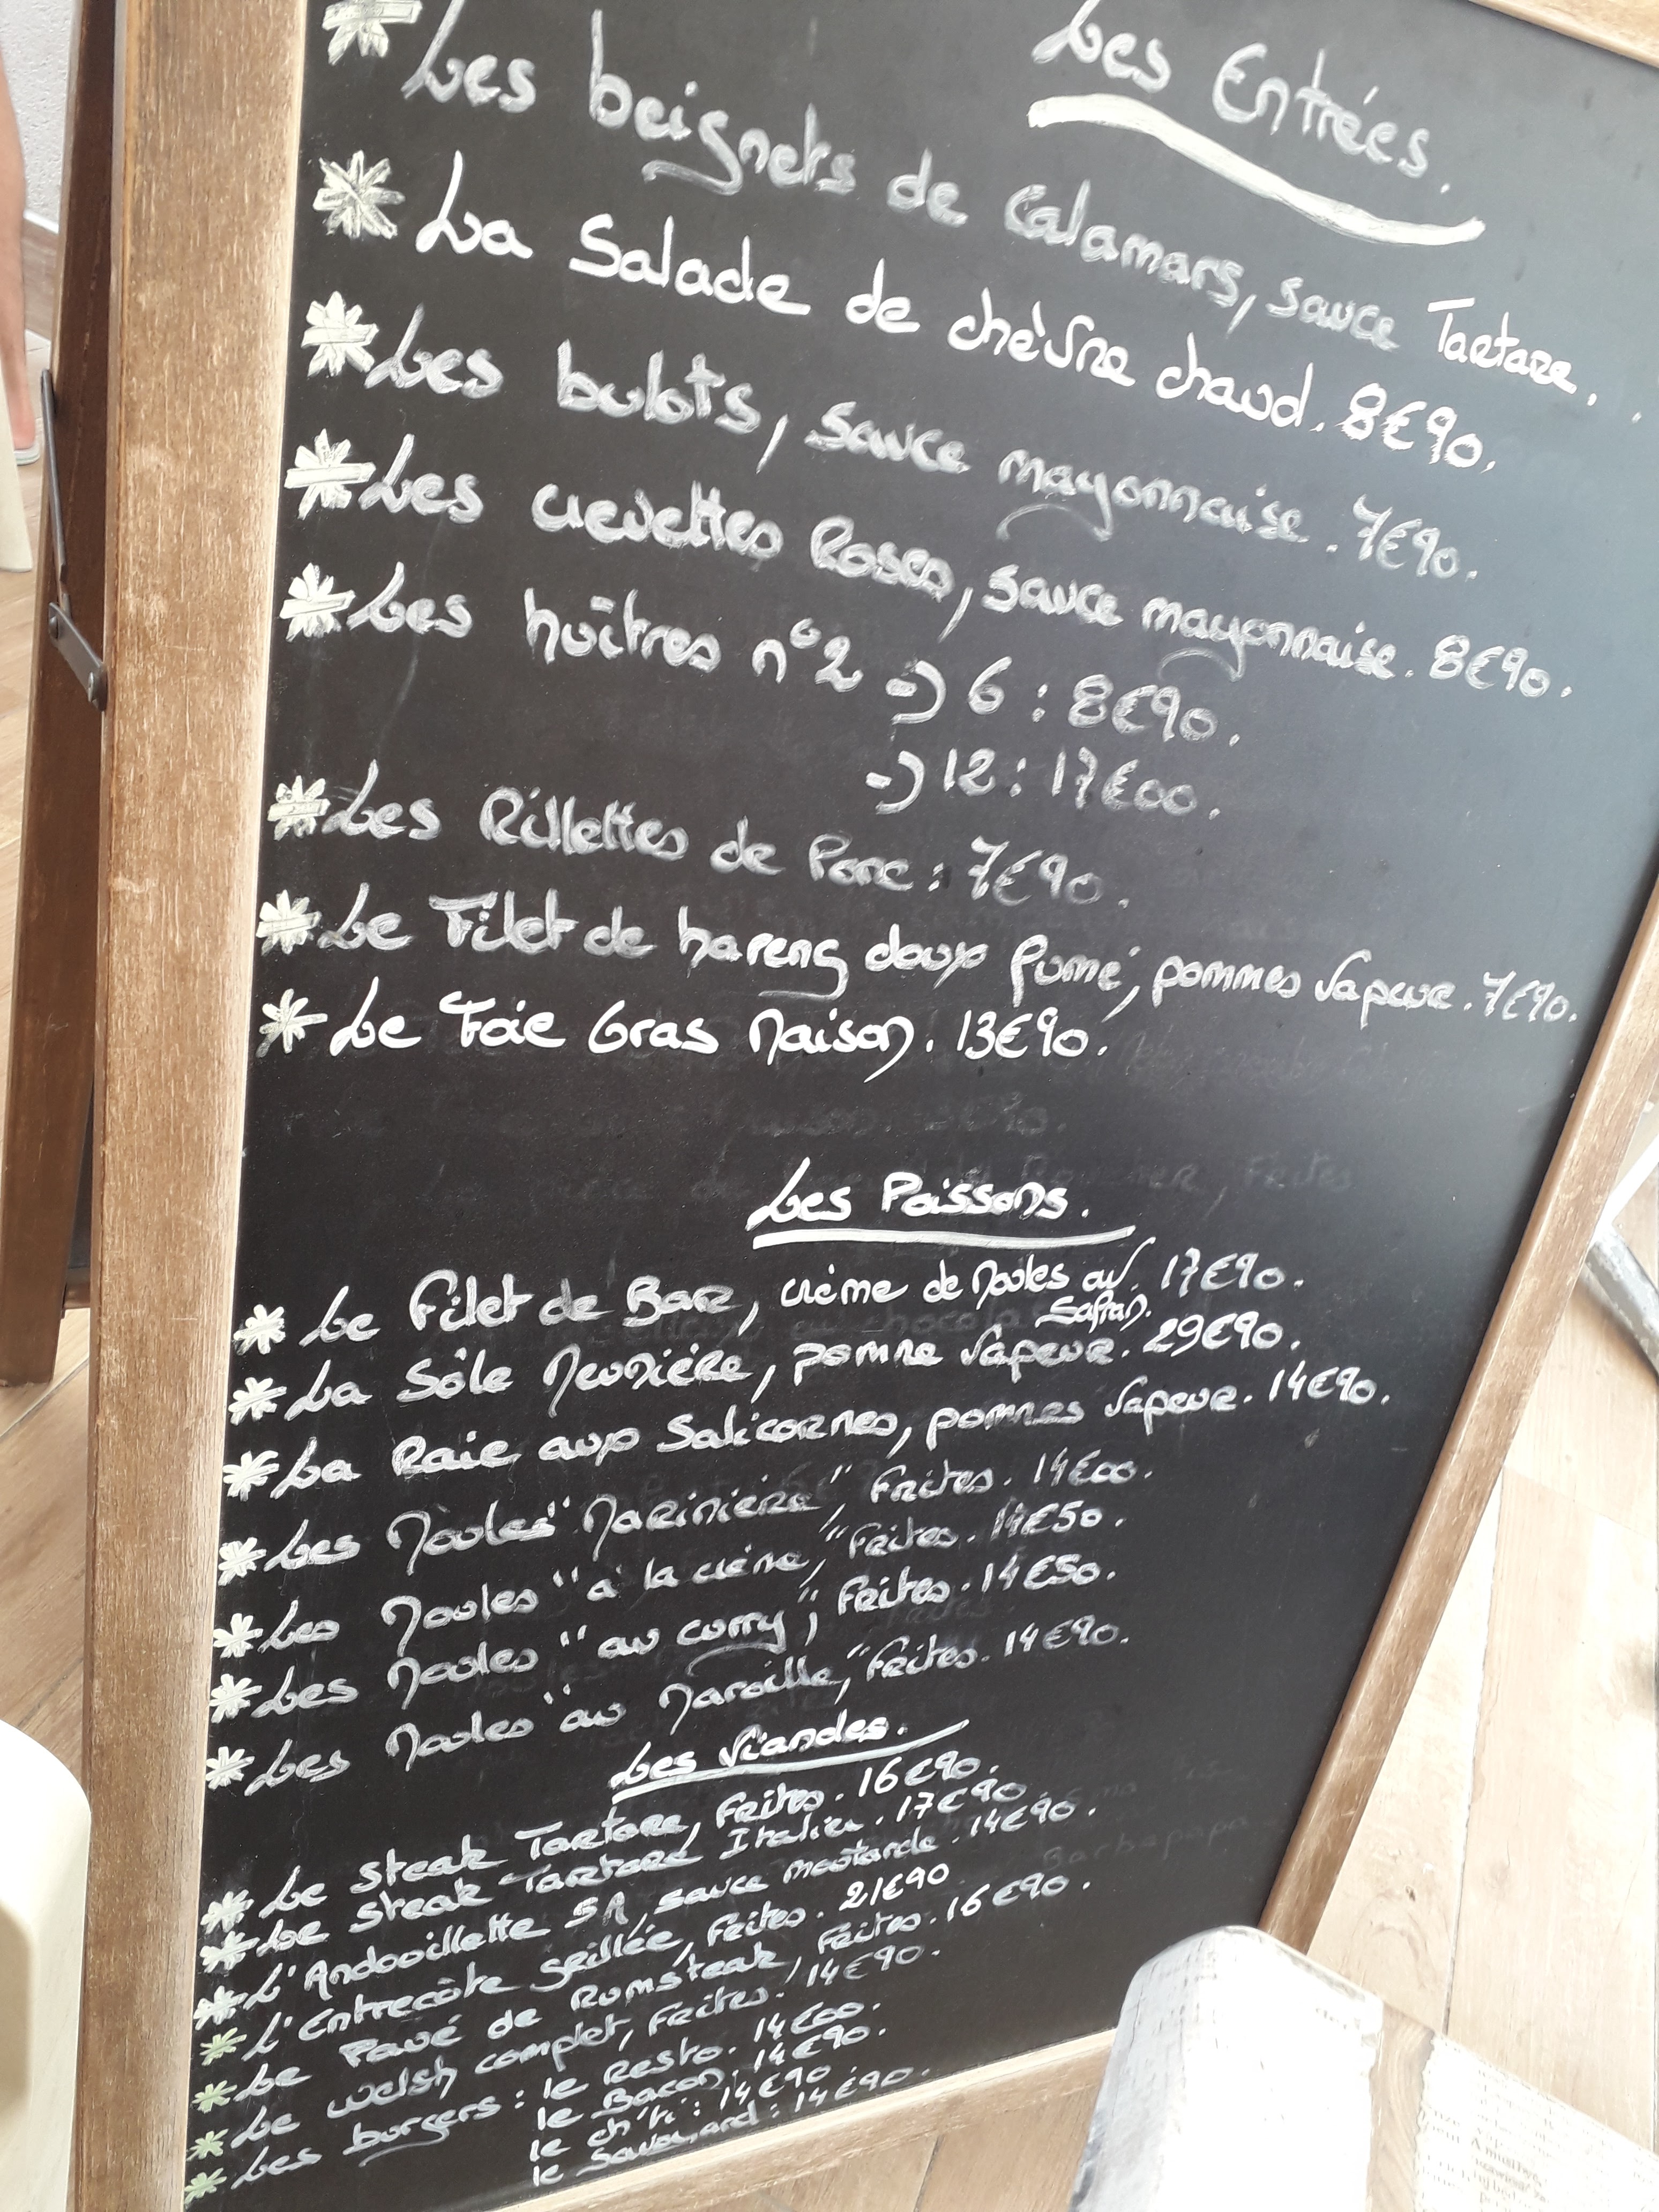 Les Entrées.
* Les beignets de Calamars, sauce Tartare.
* La Salade de chèvre chaud. 8€90.
* Les bulots, sauce mayonnaise. 7€90.
* Les crevettes Roses, sauce mayonnaise. 8€90.
* Les huîtres n°2 -> 6 : 8€90.
-> 12 : 17€00.
* Les Rillettes de Porc : 7€90.
* Le Filet de hareng doux fumé, pommes vapeur. 7€90.
* Le Foie Gras Maison. 13€90.
Les Poissons.
* Le Filet de Bar, crème de Moules au Safran. 17€90.
* La Sôle Meunière, pomme vapeur. 29€90.
* La Raie aux Salicornes, pommes vapeur. 14€90.
* Les Moules "Marinière", Frites. 14€00.
* Les Moules "à la crème," Frites. 14€50.
* Les Moules "au curry", Frites. 14€50.
* Les Moules "au Maroille," Frites. 14€90.
Les Viandes.
* Le Steak Tartare, Frites. 16€90.
* Le Steak Tartare Italien. 17€90.
* L'Andouillette 5A, sauce moutarde. 14€90.
* L'Entrecôte grillée, Frites. 21€90
* Le Pavé de Rumsteak, Frites. 16€90.
* Le Welsh complet, Frites. 14€90.
* Les burgers : le Resto. 14€00.
le Bacon. 14€90.
le ch'ti : 14€90
le Savoyard : 14€90.